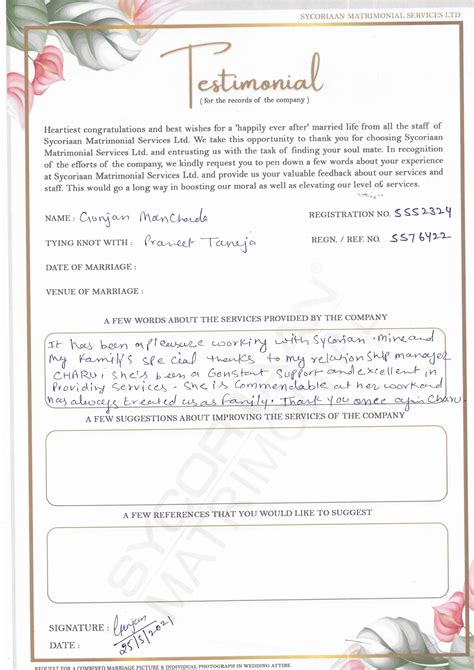 SYCORIAAN MATRIMONIAL SERVICES LTD
Testimonial
( for the records of the company )
Heartiest congratulations and best wishes for a 'happily ever after' married life from all the staff of
Sycoriaan Matrimonial Services Ltd. We take this opportunity to thank you for choosing Sycoriaan
Matrimonial Services Ltd. and entrusting us with the task of finding your soul mate. In recognition
of the efforts of the company, we kindly request you to pen down a few words about your experience
at Sycoriaan Matrimonial Services Ltd. and provide us your valuable feedback about our services and
staff. This would go a long way in boosting our moral as well as elevating our level of services.
NAME : Gunjan Manchanda REGISTRATION NO. 5552324
TYING KNOT WITH : Praneet Taneja REGN. / REF. NO. 5576422
DATE OF MARRIAGE :
VENUE OF MARRIAGE :
A FEW WORDS ABOUT THE SERVICES PROVIDED BY THE COMPANY
It has been a pleasure working with Sycorian. Mine and
My Family's special thanks to my relationship manager
CHARU, she's been a Constant Support and excellent in
Providing Services. She is Commendable at her work and
has always treated us as Family. Thank you once again Charu.
A FEW SUGGESTIONS ABOUT IMPROVING THE SERVICES OF THE COMPANY
A FEW REFERENCES THAT YOU WOULD LIKE TO SUGGEST
SYCORIAN
MATRIMONY
SIGNATURE : Gunjan
DATE : 25/5/2021
REQUEST FOR A COMBINED MARRIAGE PICTURE & INDIVIDUAL PHOTOGRAPH IN WEDDING ATTIRE.